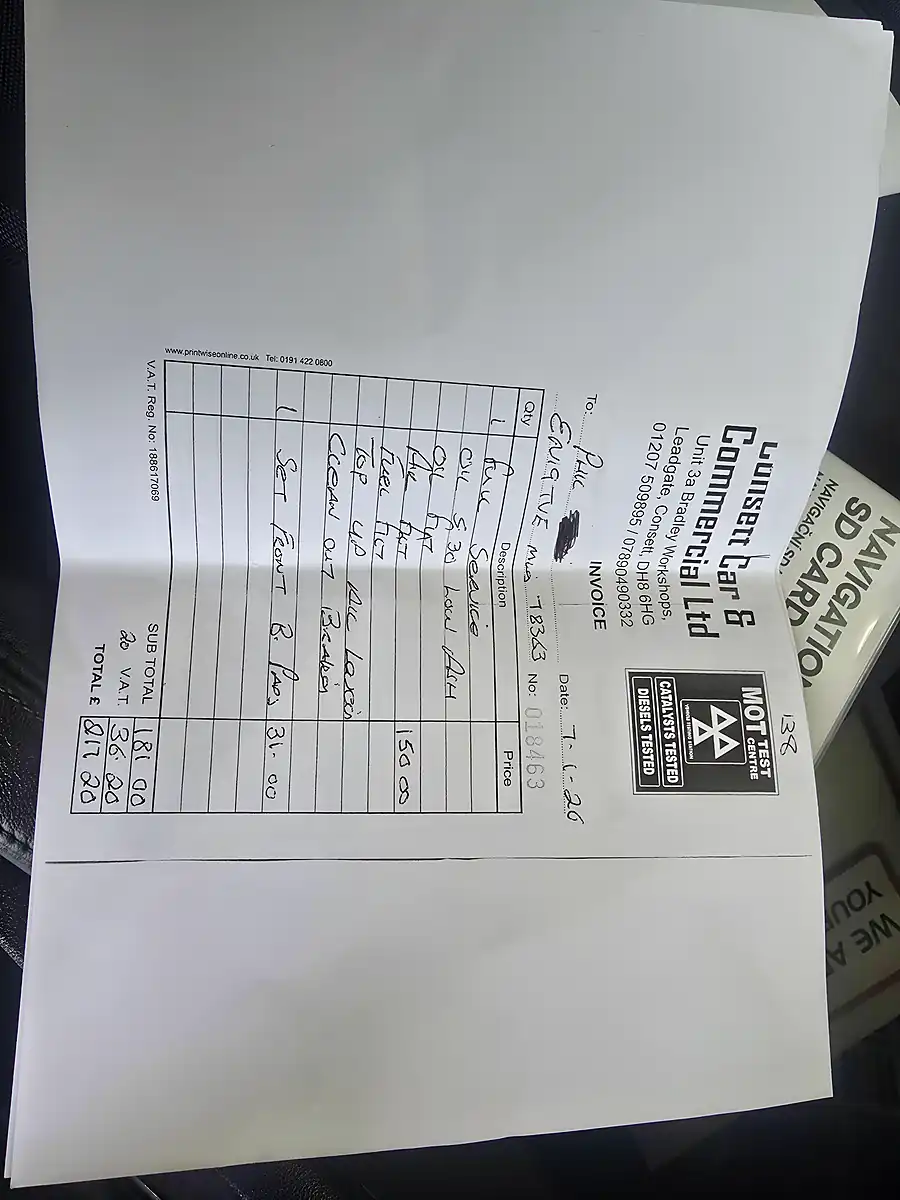 138
Consett Car &
Commercial Ltd
Unit 3a Bradley Workshops,
Leadgate, Consett, DH8 6HG
01207 509895 / 07890490332
MOT TEST
CENTRE
VEHICLE TESTING STATION
CATALYSTS TESTED
DIESELS TESTED
INVOICE
To: Paul
Date: 7-1-26
78363 No: 018463
Qty Description Price
1 Full Service
Oil 5.30 Low Ash
Oil Filt
Air Filt 150 00
Fuel Filt
Top up All Levels
Clean out Brakes
1 SET FRONT B. Pads 31.00
www.printwiseonline.co.uk Tel: 0191 422 0800
V.A.T. Reg. No: 188617069
SUB TOTAL 181 00
20 V.A.T. 36.20
TOTAL £ 217 20
NAVIGATION
SD CARD
NAVIGAČNÍ SD
WE A
YOUR